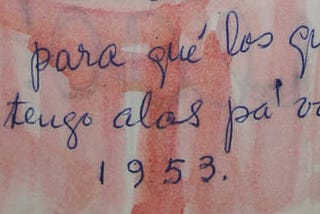 para qué los qu
tengo alas pa' vo
1953.